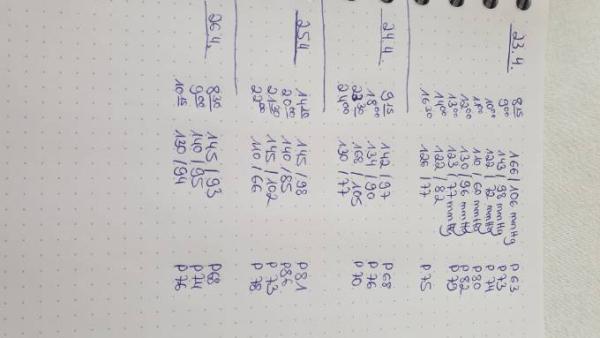 23.4.
8¹⁵ 166/106 mmHg P 63
9⁰⁰ 143/98 mmHg P 73
10⁰⁰ 122/72 mmHg P 74
11⁰⁰ 110/60 mmHg P 80
12⁰⁰ 130/96 mmHg P 82
13⁰⁰ 123/77 mmHg P 79
14⁰⁰ 122/82
16³⁰ 126/77 P 75
24.4.
9¹⁵ 142/97 P 68
18⁰⁰ 134/90 P 76
23³⁰ 168/105 P 70
24⁰⁰ 130/77
25.4.
14¹⁵ 145/98 P 81
20⁰⁰ 140/85 P 86
21³⁰ 145/102 P 73
22⁰⁰ 110/66 P 78
26.4.
8³⁰ 145/93 P 68
9⁰⁰ 140/95 P 74
10¹⁵ 130/94 P 76